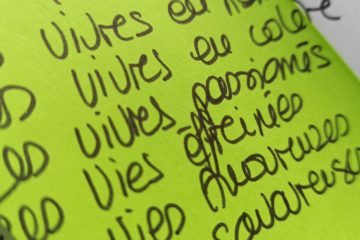 vivres en
vivres en colère
vivres passionnés
vies effrénées
vies amoureuses
savoureuses